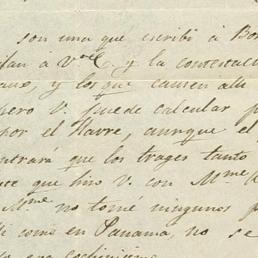 son una que escribí á Bor
lan á V. y la contestac
uno, y los que causen alli
pero V. puede calcular p
por el Havre, aunque el
ntrará que los trages tanto
te que hizo V. con Mme
Mme no tomé ningunos p
i como en Panamá, no se